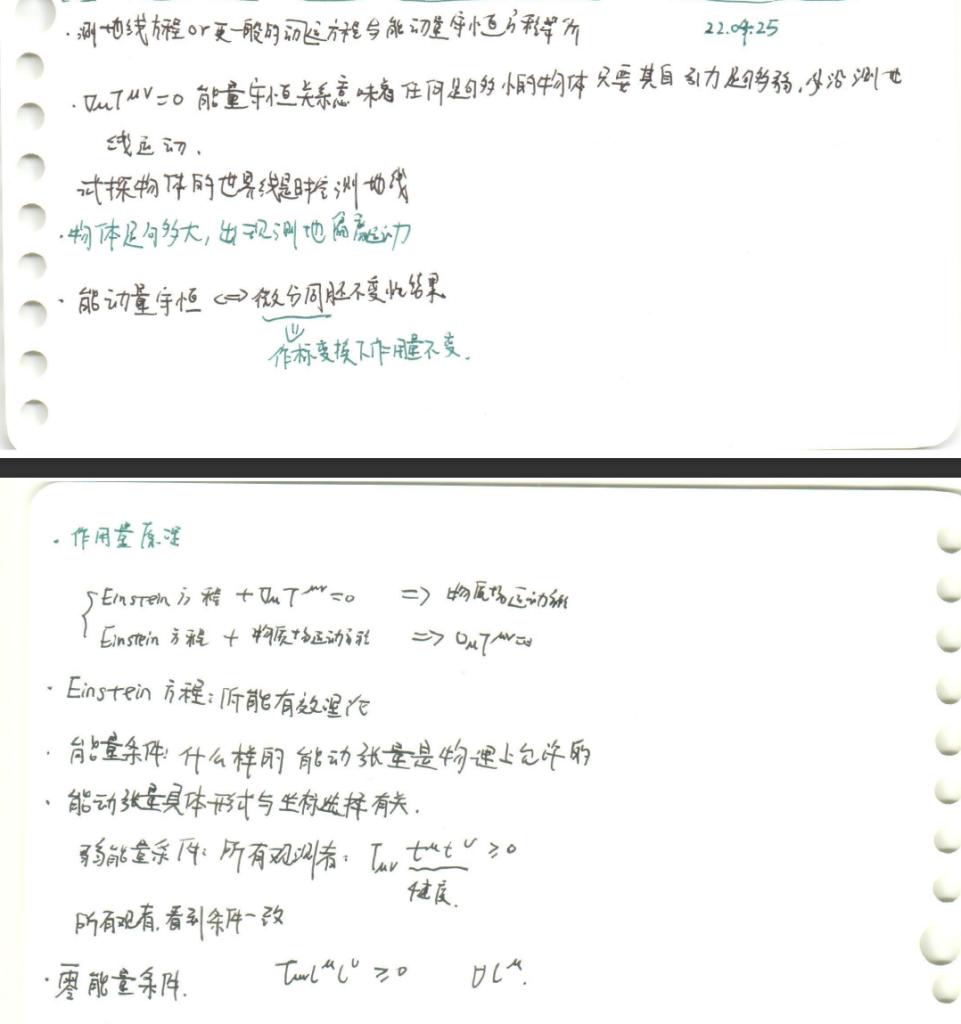 · 测地线方程 or 更一般的动运方程与能动量守恒方程等价
22.04.25
· ∇μT^μν=0 能量守恒关系意味着任何足够小的物体只要其自引力足够弱,必沿测地
线运动.
试探物体的世界线是时空测地线
· 物体足够大,出现测地偏离运动
· 能动量守恒 <=> 微分同胚不变性结果
作标变换下作用量不变.
· 作用量原理
Einstein 方程 + ∇μT^μν=0 => 物质场运动方程
Einstein 方程 + 物质场运动方程 => ∇μT^μν=0
· Einstein 方程: 低能有效理论
· 能量条件: 什么样的能动张量是物理上允许的
· 能动张量具体形式与坐标选择有关.
弱能量条件: 所有观测者: Tμν t^μ t^ν ≥ 0
速度.
所有观者,看到条件一致
· 零能量条件. Tμν l^μ l^ν ≥ 0 ∀ l^μ.